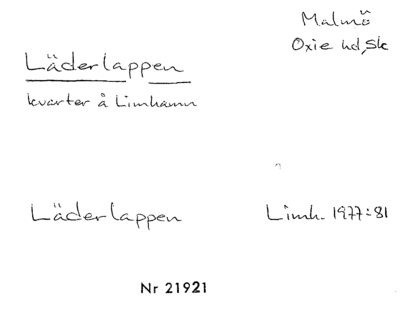 Malmö
Oxie hd, Sk
Läderlappen
kvarter å Limhamn
Läderlappen Limh. 1977:81
Nr 21921